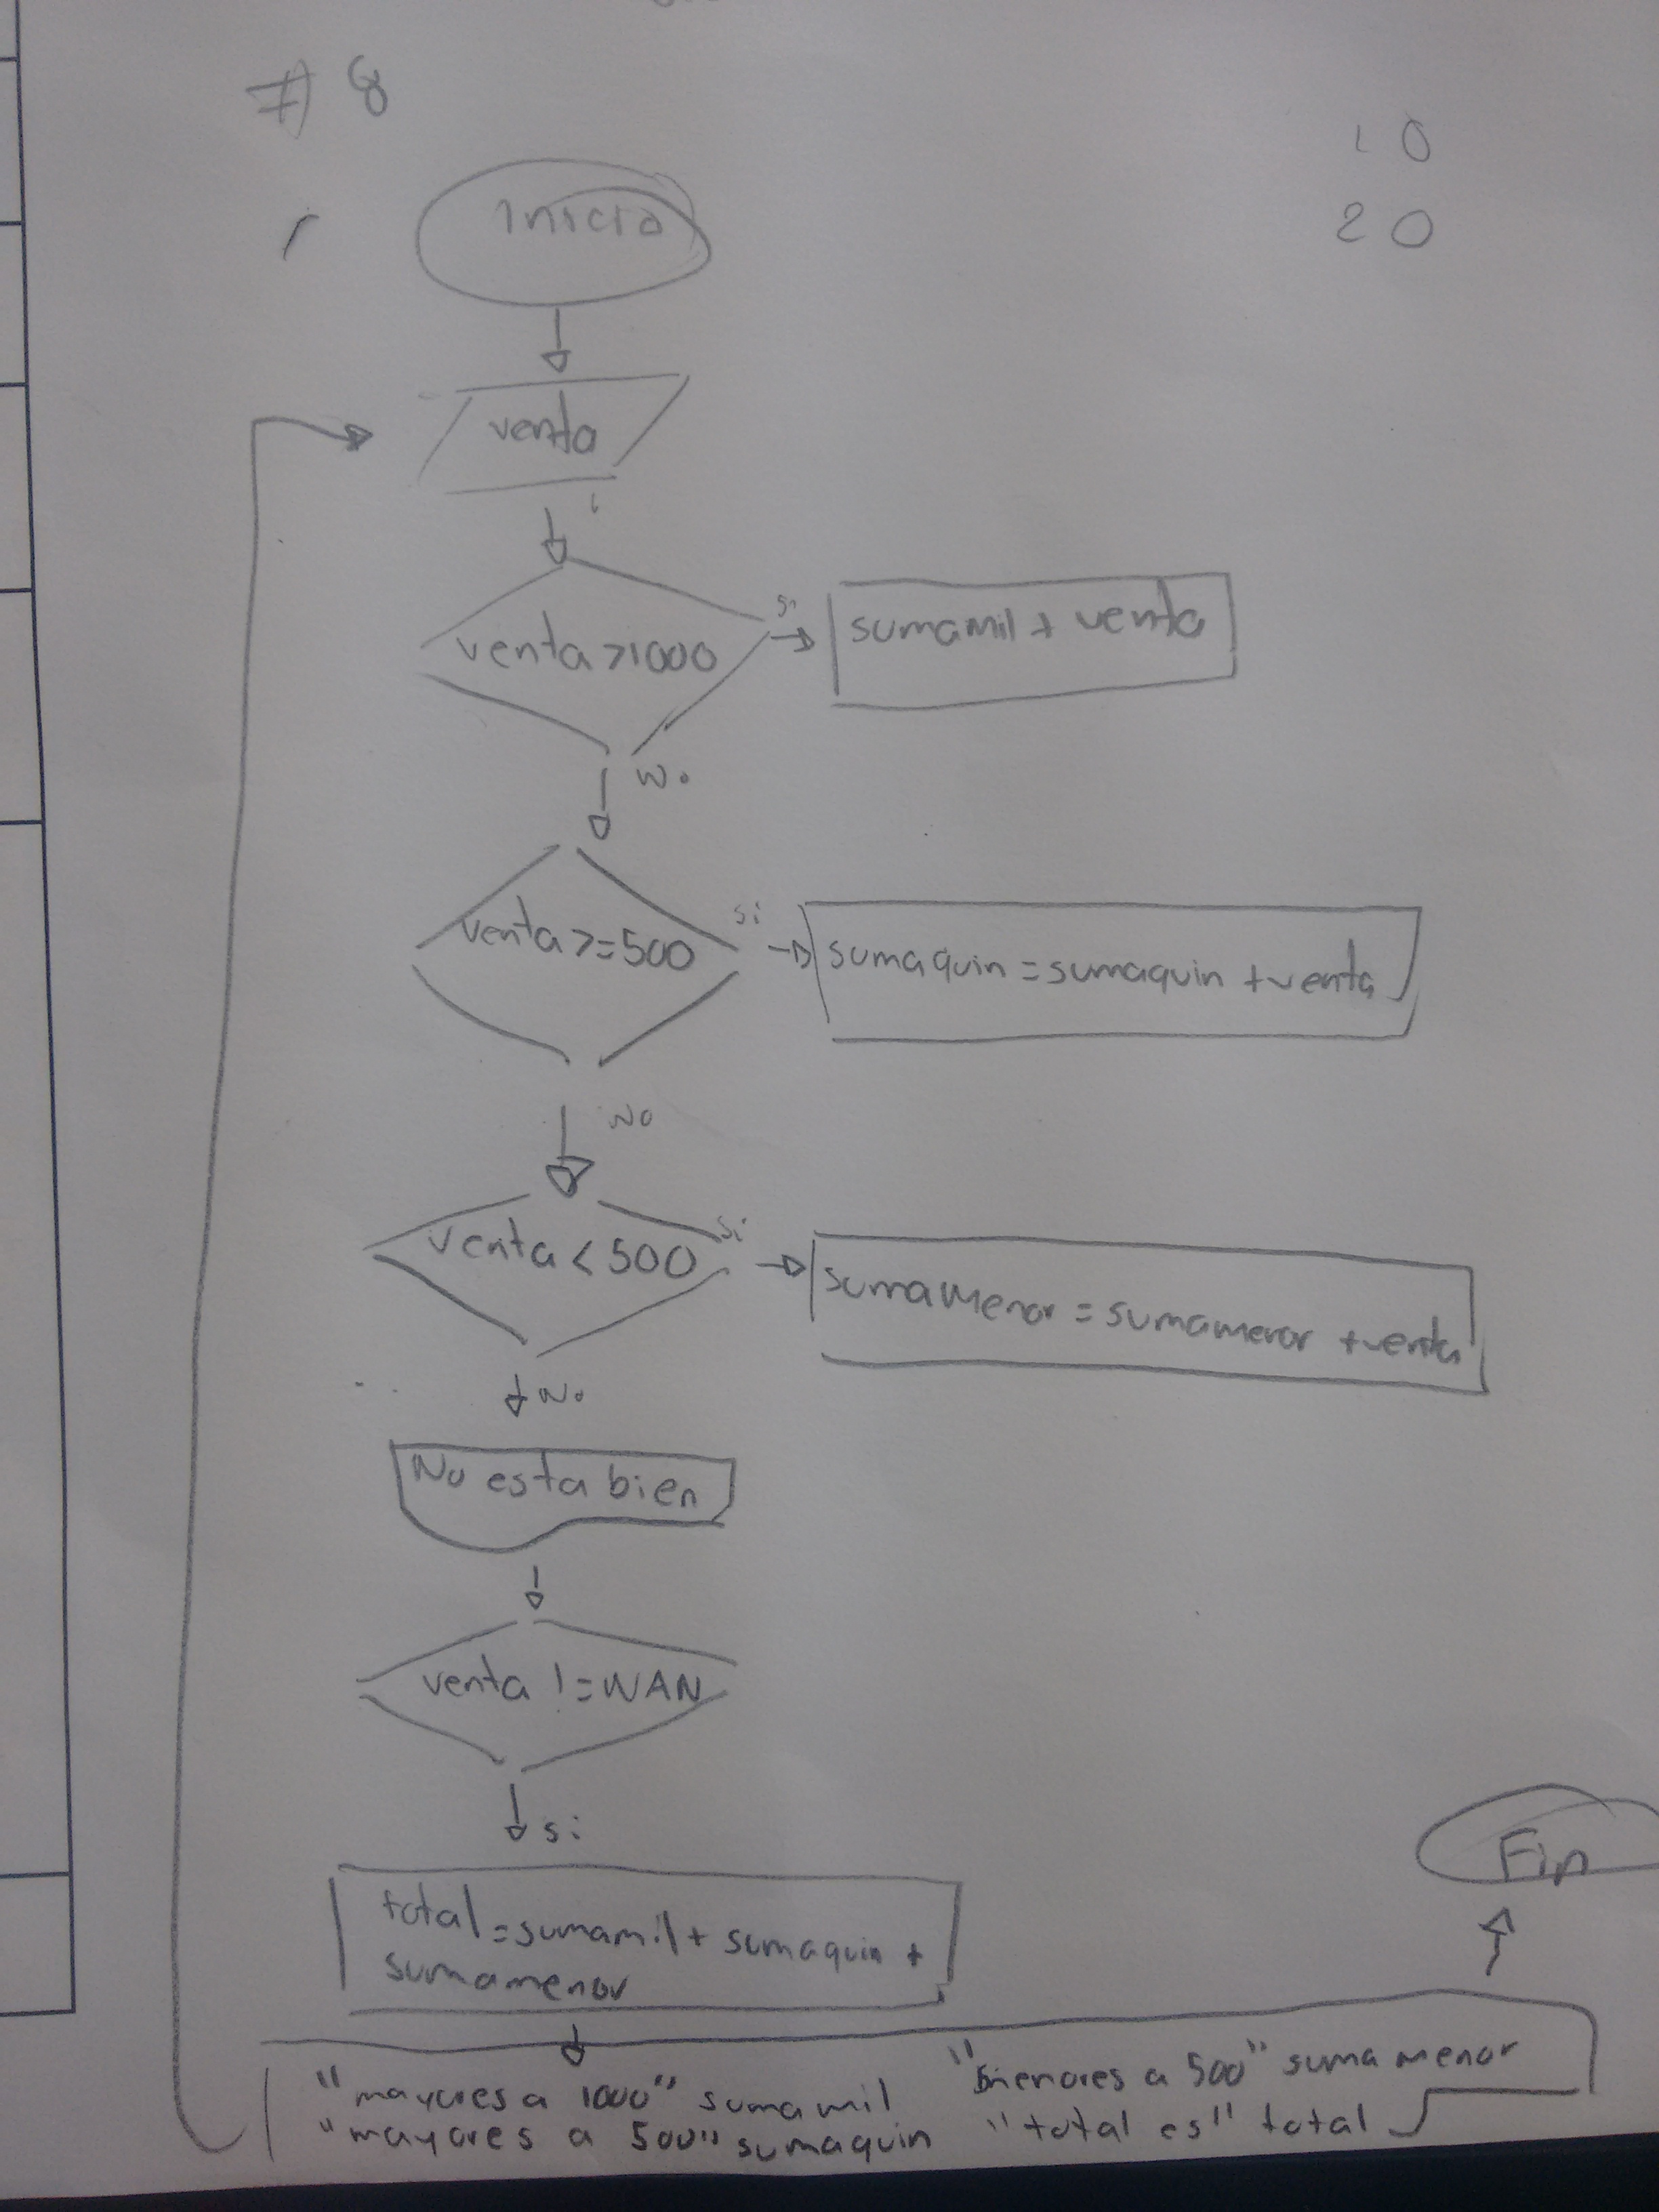 #8
10
20
Inicio
venta
venta >1000
si
sumamil + venta
No
venta >=500
si
sumaquin = sumaquin + venta
No
venta < 500
si
sumamenor = sumamenor + venta
No
No esta bien
venta != NAN
si
total = sumamil + sumaquin +
sumamenor
Fin
"mayores a 1000" sumamil
"mayores a 500" sumaquin
"menores a 500" suma menor
"total es" total